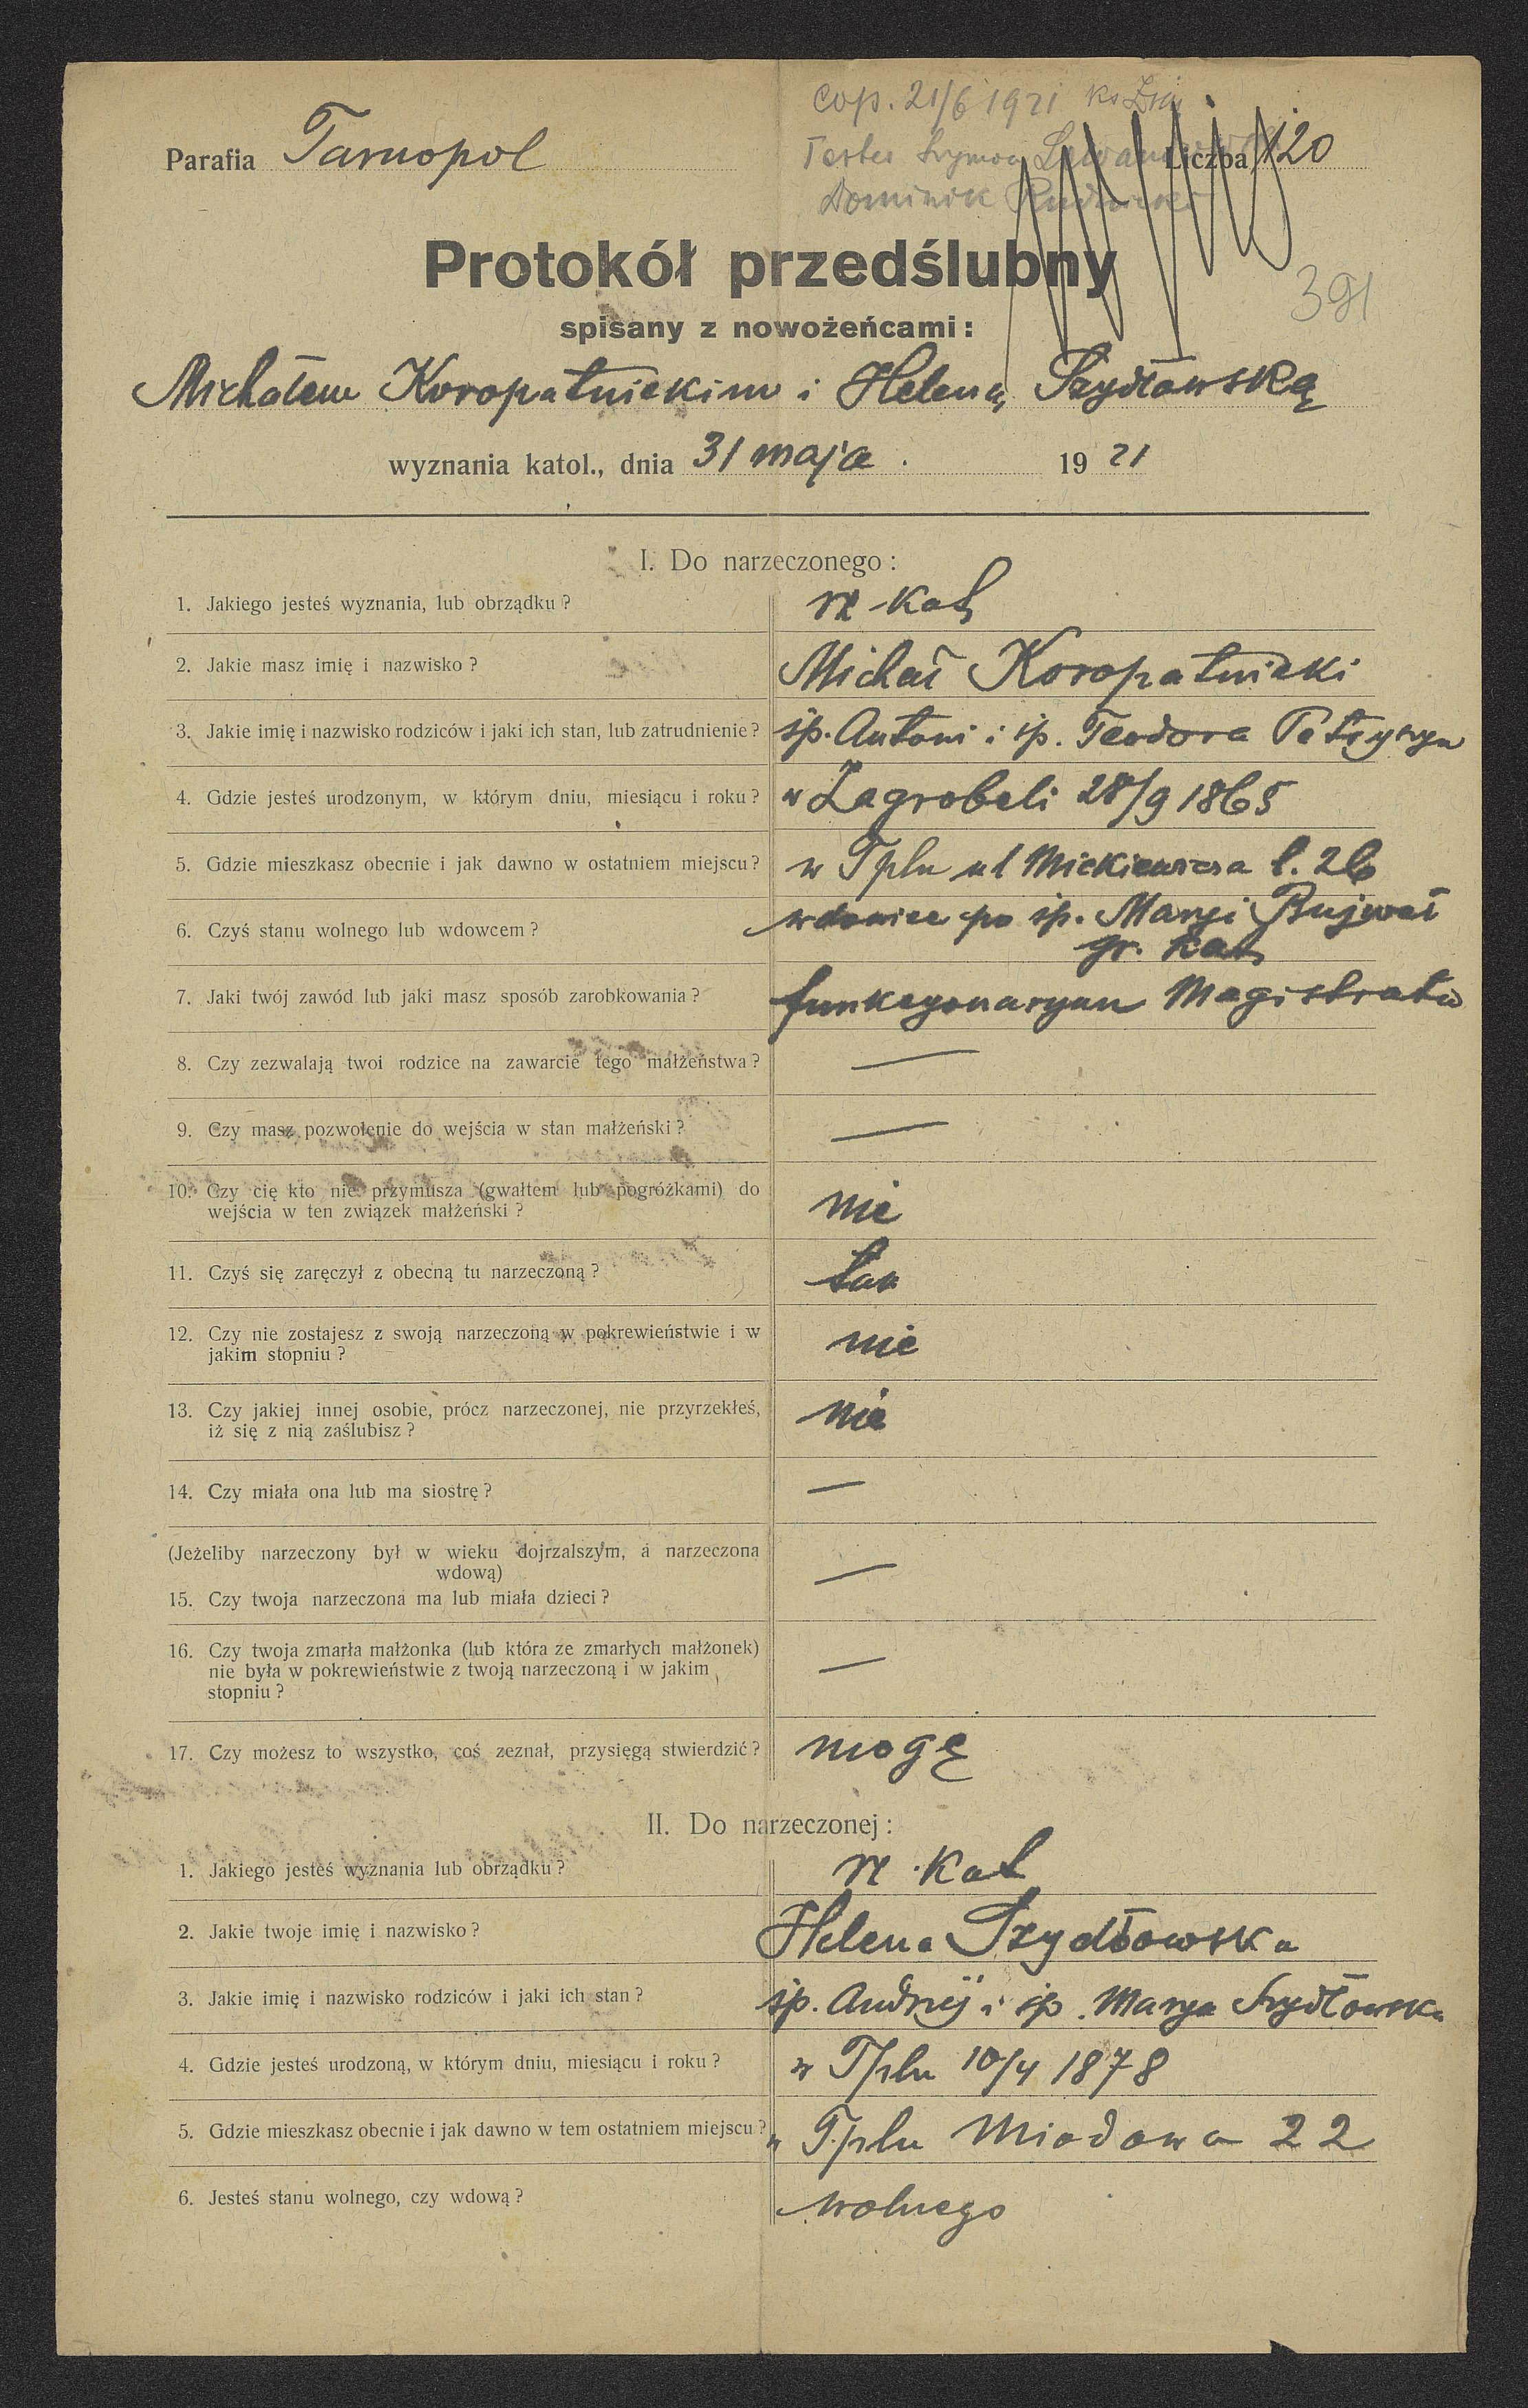 cop. 21/6 1921 ks
Parafia Tarnopol
Testes Szymon Liczba 120
Dominik
Protokół przedślubny
391
spisany z nowożeńcami:
Michałem Koropatnickim i Heleną Szydłowską
wyznania katol., dnia 31 maja . 19 21
I. Do narzeczonego:
1. Jakiego jesteś wyznania, lub obrządku? rz kat
2. Jakie masz imię i nazwisko? Michał Koropatnicki
3. Jakie imię i nazwisko rodziców i jaki ich stan, lub zatrudnienie? śp. Antoni i śp. Teodora
4. Gdzie jesteś urodzonym, w którym dniu, miesiącu i roku? w Zagrobeli 28/9 1865
5. Gdzie mieszkasz obecnie i jak dawno w ostatniem miejscu? w Tplu ul Mickiewicza l. 26
6. Czyś stanu wolnego lub wdowcem? wdowiec po śp. Maryi
gr. kat
7. Jaki twój zawód lub jaki masz sposób zarobkowania? funkcyonaryan Magistratu
8. Czy zezwalają twoi rodzice na zawarcie tego małżeństwa? —
9. Czy masz pozwolenie do wejścia w stan małżeński? —
10. Czy cię kto nie przymusza (gwałtem lub pogróżkami) do
wejścia w ten związek małżeński? nie
11. Czyś się zaręczył z obecną tu narzeczoną? tak
12. Czy nie zostajesz z swoją narzeczoną w pokrewieństwie i w
jakim stopniu? nie
13. Czy jakiej innej osobie, prócz narzeczonej, nie przyrzekłeś,
iż się z nią zaślubisz? nie
14. Czy miała ona lub ma siostrę? —
(Jeżeliby narzeczony był w wieku dojrzalszym, a narzeczona
wdową) —
15. Czy twoja narzeczona ma lub miała dzieci?
16. Czy twoja zmarła małżonka (lub która ze zmarłych małżonek)
nie była w pokrewieństwie z twoją narzeczoną i w jakim —
stopniu?
17. Czy możesz to wszystko, coś zeznał, przysięgą stwierdzić? mogę
II. Do narzeczonej:
1. Jakiego jesteś wyznania lub obrządku? rz . kat
2. Jakie twoje imię i nazwisko? Helena Szydłowska
3. Jakie imię i nazwisko rodziców i jaki ich stan? śp. Andrzej i śp. Marya Szydłowska
4. Gdzie jesteś urodzoną, w którym dniu, miesiącu i roku? w Tplu 10/4 1878
5. Gdzie mieszkasz obecnie i jak dawno w tem ostatniem miejscu? w Tplu Miodowa 22
6. Jesteś stanu wolnego, czy wdową? wolnego